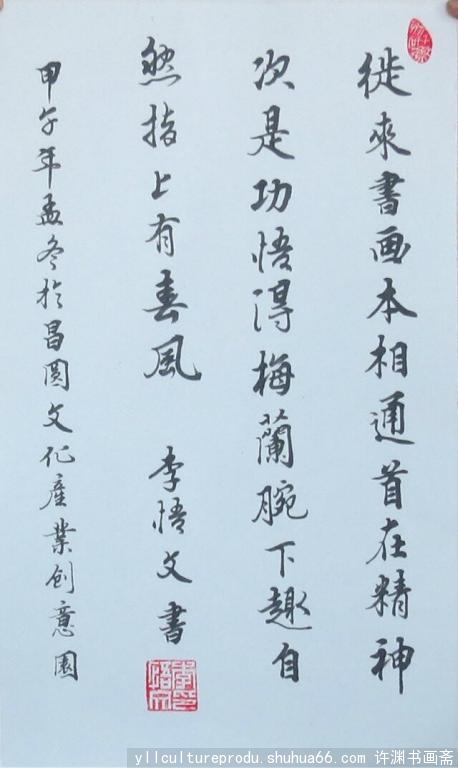 從來書画本相通首在精神
次是功悟得梅蘭腕下趣自
然指上有春風 李悟文書
甲午年孟冬於昌圆文化産業創意園
yllcultureprodu.shuhua66.com@许渊书画斋